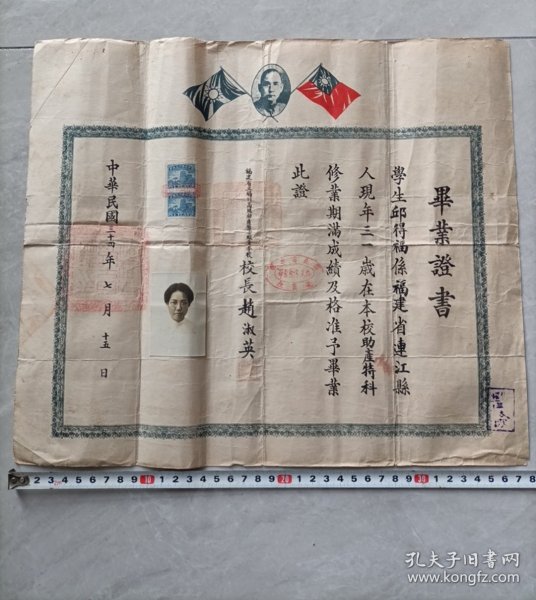 畢業證書
學生邱得福係福建省連江縣
人現年三一歲在本校助產特科
修業期滿成績及格准予畢業
此證
校長趙淑英
中華民國三十四年七月十五日
孔夫子旧书网
www.kongfz.com